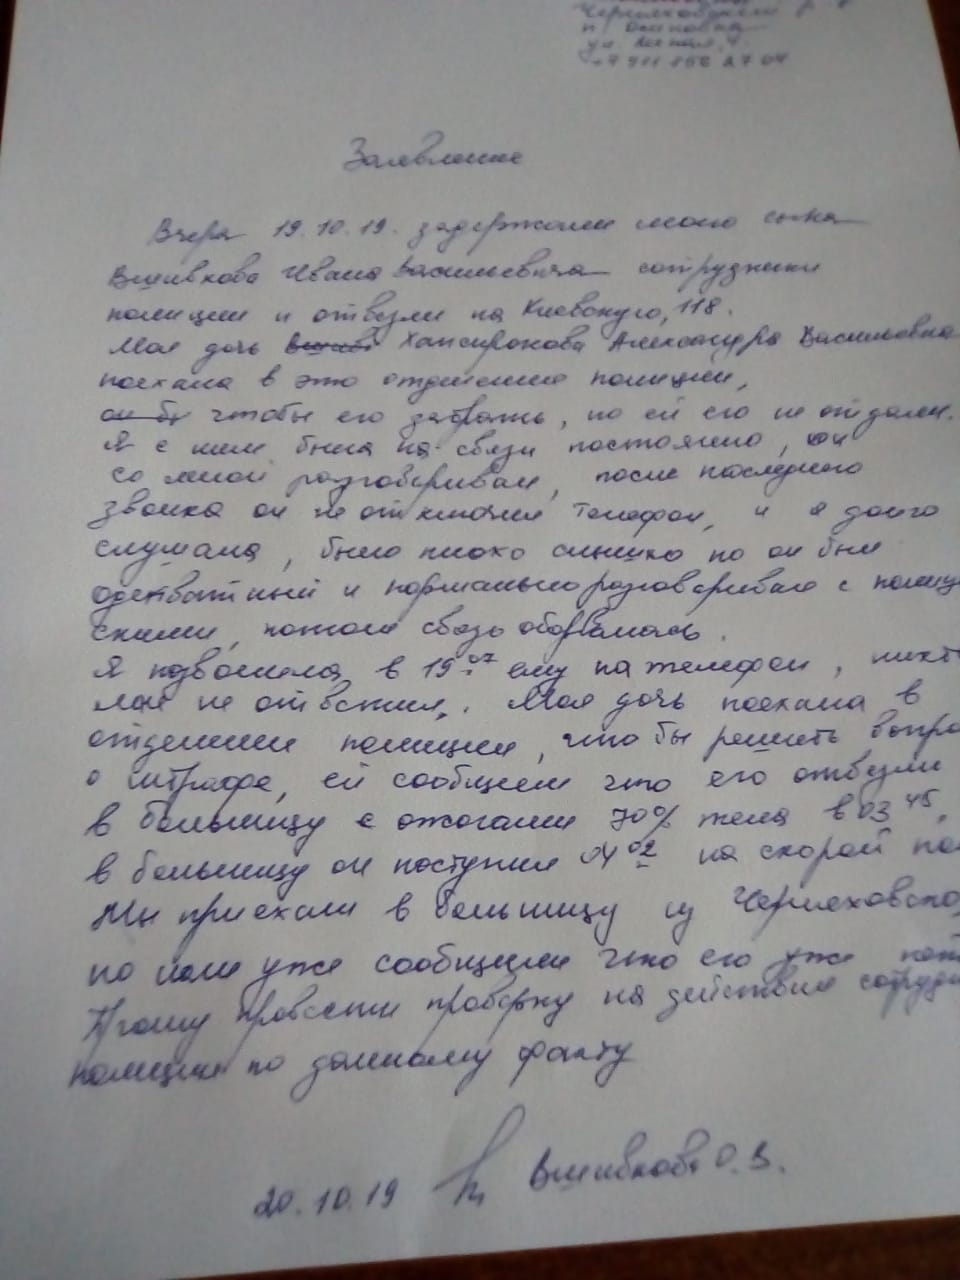 Черняховский р-
п. Осиновка
ул. Лесная, 4.
+7 911 856 27 04
Заявление
Вчера 19.10.19. задержали моего сына
Вшивкова Ивана Васильевича сотрудники
полиции и отвезли на Киевскую, 118.
Моя дочь Хапсирокова Александра Васильевна
поехала в это отделение полиции,
он бу чтобы его забрать, но ей его не отдали.
Я с ним была на связи постояно, он
со мной разговаривал, после последнего
звонка он не отключил телефон, и я долго
слушала, было плохо слышно но он был
адекватный и нормально разговаривал с полицей
скими, потом связь оборвалась.
Я позвонила в 19 07 ему на телефон, никто
мне не ответил. Моя дочь поехала в
отделение полиции, что бы решить вопро
о штрафе, ей сообщили что его отвезли
в больницу с ожогами 70% тела в 03 45,
в больницу он поступил 04 02 на скорой пом
Мы приехали в больницу г Черняховска,
но нам уже сообщили что его уже нет
Прошу провести проверку на действия сотрудн
полиции по данному факту
20.10.19 Вшивкова О.В.